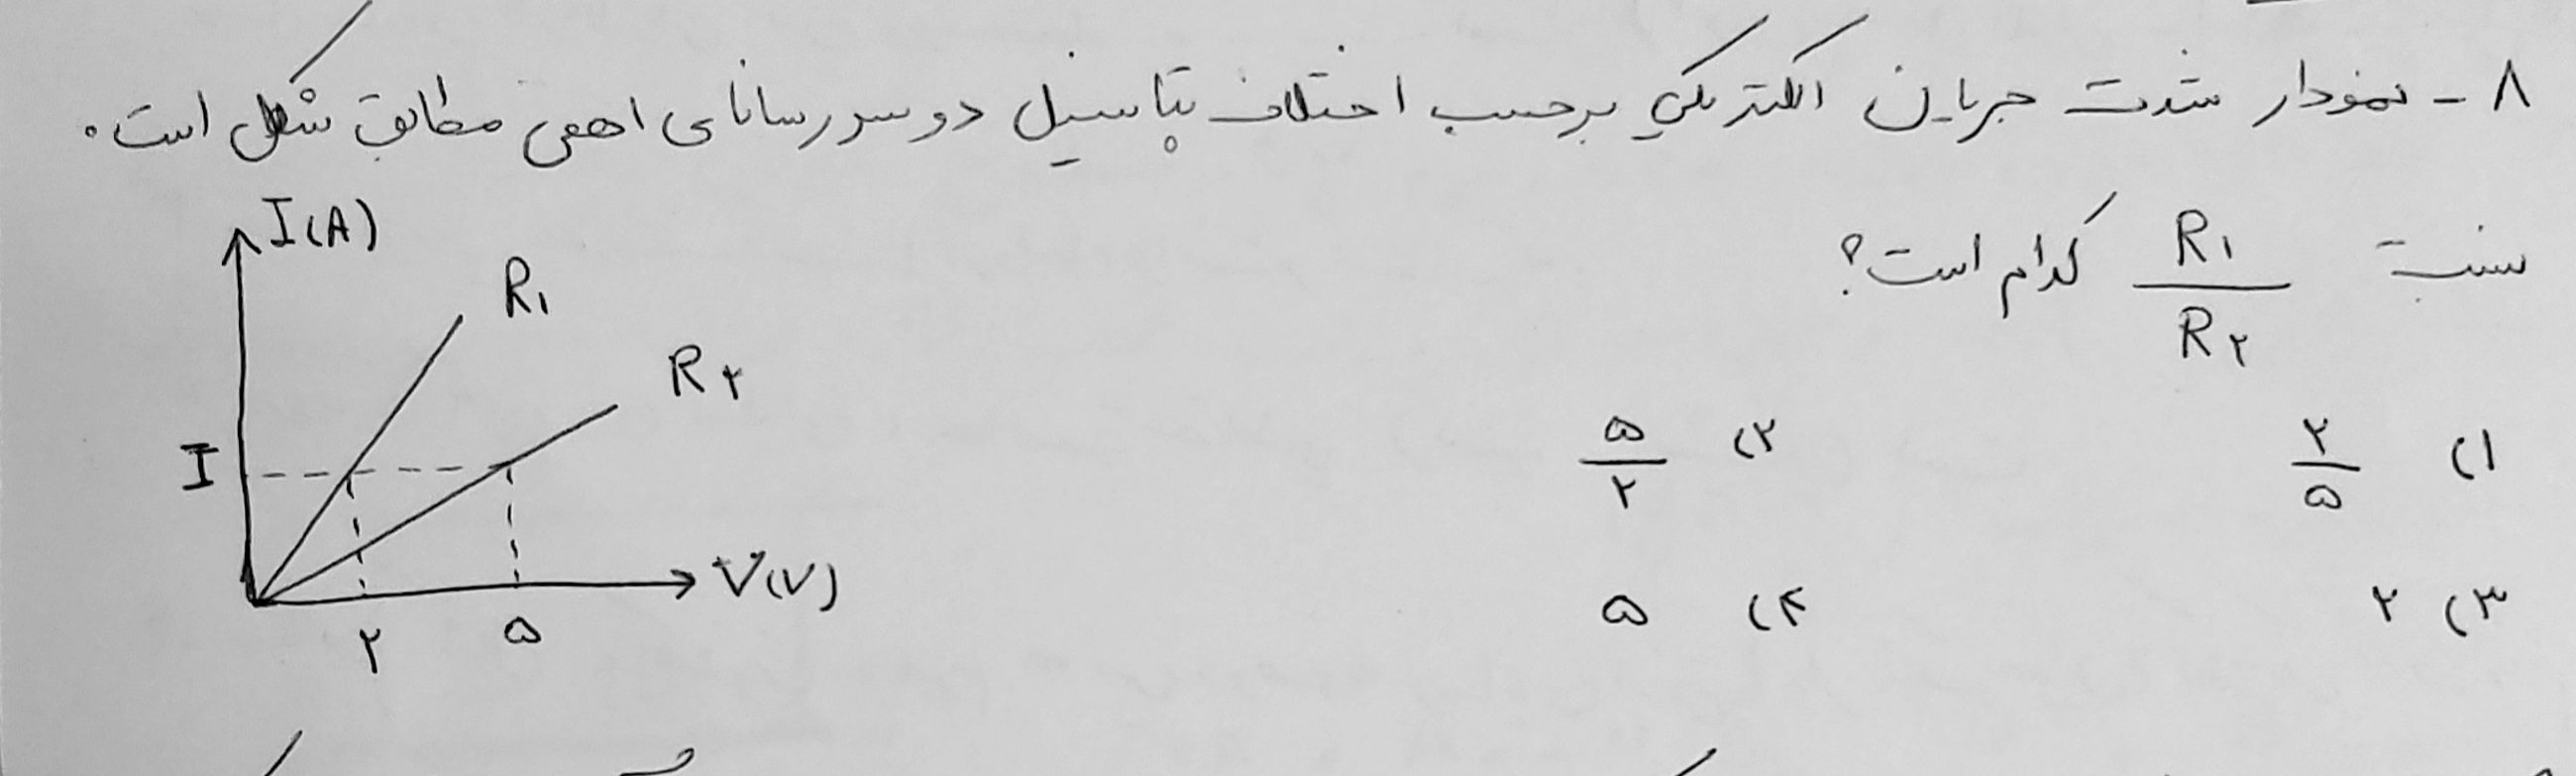 ۸ - نمودار شدت جریان الکتریکی برحسب اختلاف پتانسیل دو سر رسانای اهمی مطابق شکل است.
نسبت R۱/R۲ کدام است؟
۱) ۲/۵
۲) ۵/۲
۳) ۲
۴) ۵
I(A)
R۱
R۲
I
V(V)
۲
۵